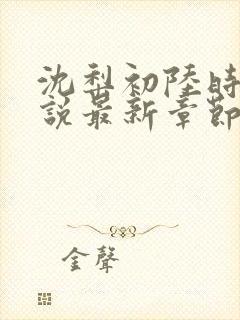 沈梨初陸時
說最新章節
金聲